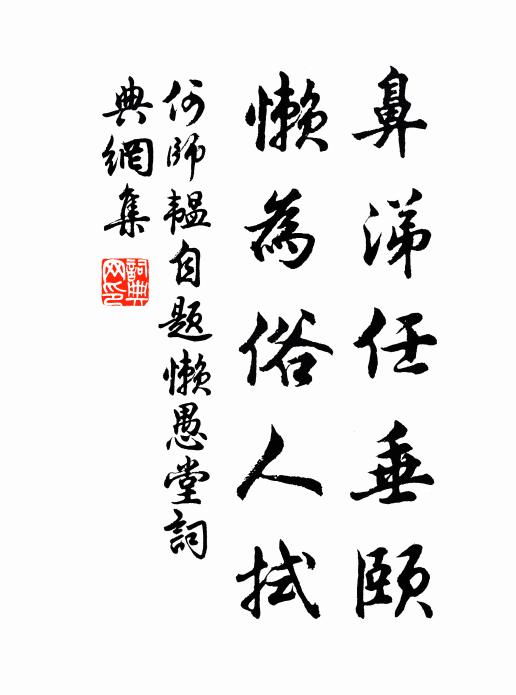 鼻涕任垂頤
懶為俗人拭
何師韞自题懶愚堂詞
典網集
詞典
网印